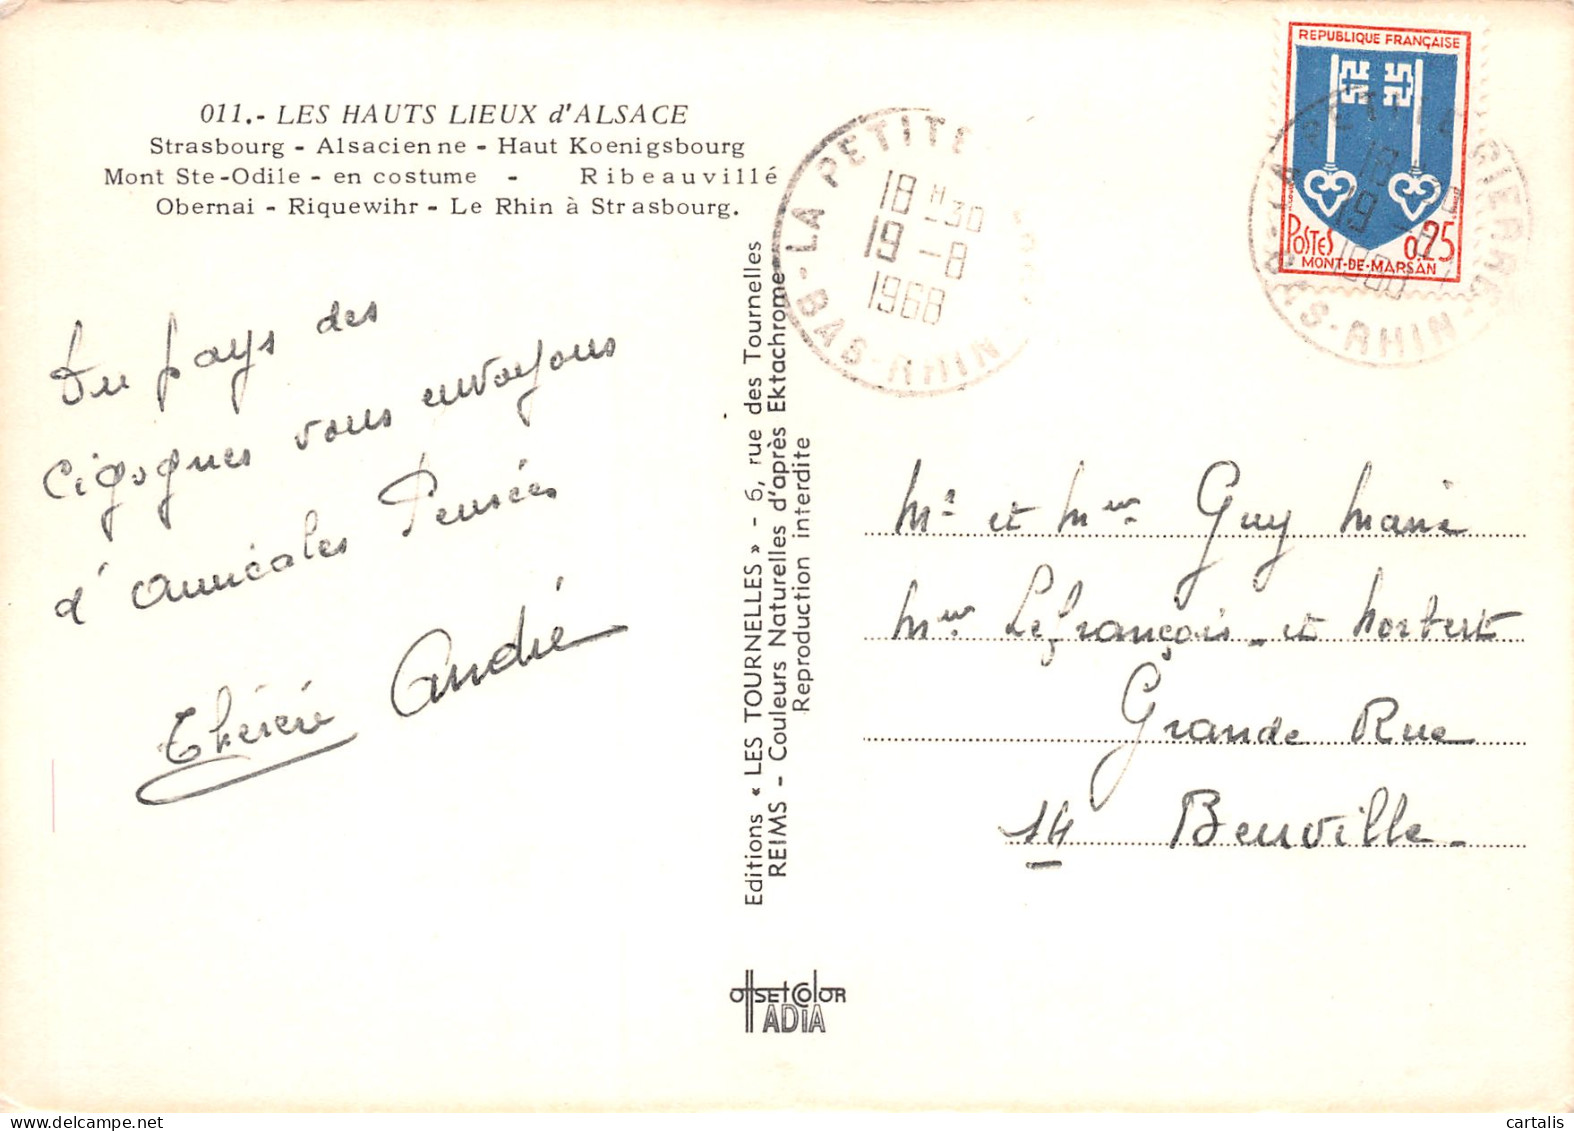 011.- LES HAUTS LIEUX d'ALSACE
Strasbourg - Alsacienne - Haut Koenigsbourg
Mont Ste-Odile - en costume - Ribeauvillé
Obernai - Riquewihr - Le Rhin à Strasbourg.
Du pays des
cigognes vous envoyons
d'amicales Pensées
Thérèse André
Editions « LES TOURNELLES » - 6, rue des Tournelles
REIMS - Couleurs Naturelles d'après Ektachrome
Reproduction interdite
OffSET COlOR
ADiA
LA PETITE
18 H 30
19 - 8
1968
BAS-RHIN
REPUBLIQUE FRANÇAISE
POSTES 0,25
MONT-DE-MARSAN
LA PETITE PIERRE
19 -8
BAS-RHIN
Mr et Mme Guy Marie
Mme Lefrançois et Norbert
Grande Rue
14 Beuville
cartalis
delcampe.net